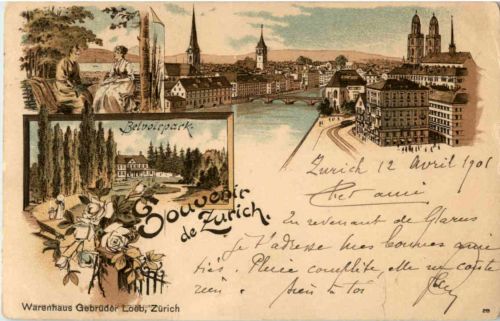 Belvoirpark.
Souvenir
de Zurich.
Zurich 12 Avril 1901
Cher ami
En revenant de Glarus
je t'adresse mes bonnes amitiés.
Pluie complète, elle ne coûte
rien. Bien à toi
Warenhaus Gebrüder Loeb, Zürich